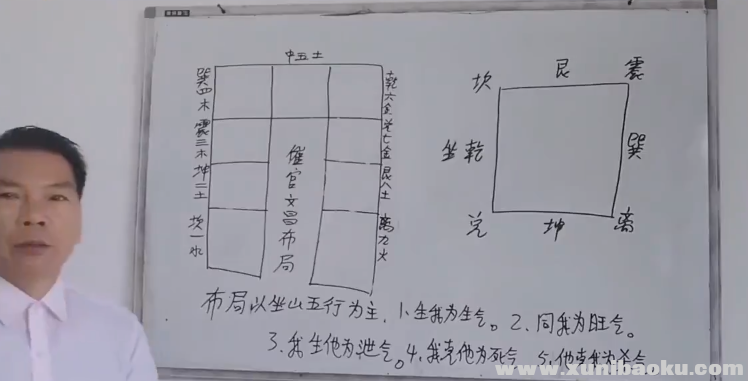 中五土
巽四木
震三木
坤二土
坎一水
乾六金
兑七金
艮八土
离九火
催官文昌布局
坎 艮 震
坐乾 巽
兑 坤 离
布局以坐山五行为主、1.生我为生气。2、同我为旺气。
3、我生他为泄气。4、我克他为死气 5、他克我为杀气
www.xunibaoku.com